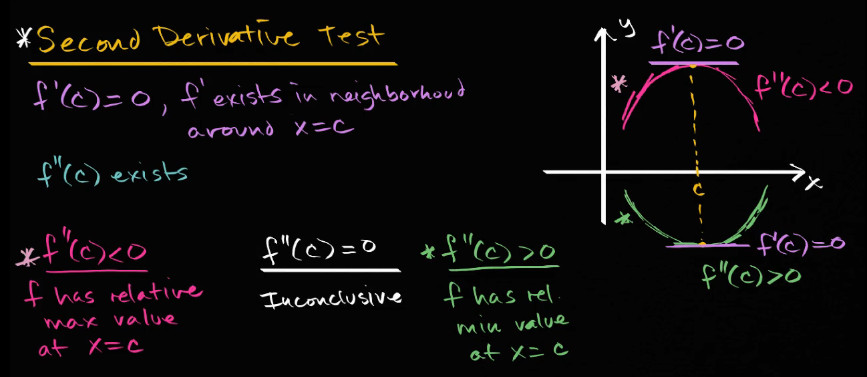 *Second Derivative Test
f'(c)=0, f' exists in neighborhood
around x=c
f"(c) exists
*f"(c)<0
f has relative
max value
at x=c
f"(c)=0
Inconclusive
*f"(c)>0
f has rel.
min value
at x=c
y
f'(c)=0
*
f"(c)<0
x
c
*
f'(c)=0
f"(c)>0